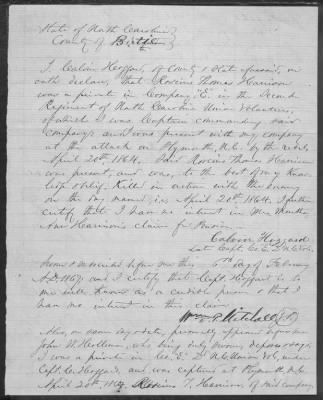 State of North Carolina
County of Bertie
I, Calvin Hoggard, of County & State aforesaid, on
oath declare, that Roscius Thomas Harrison
was a private in Company "E" in the Second
Regiment of North Carolina Union Volunteers,
of which I was Captain commanding said
company and was present with my company
at the attack on Plymouth, N.C. by the rebels
April 20th, 1864. Said Roscius Thomas Harrison
was present, and was, to the best of my know-
ledge & belief, killed in action with the enemy
on the day named, i.e. April 20th 1864. I further
certify that I have no interest in Mrs.
Ann Harrison's claim for Pension.
Calvin Hoggard
Late Capt. Co. E. 2 N.C. Vols.
Sworn & subscribed before me this 6th day of February
A.D. 1867, and I certify that Capt. Hoggard is to
me well known as a credible person & that I
have no interest in this claim
Wm P. Mitchell J.P.
Also, on same day & date, personally appeared before me
John W. who being duly sworn, deposes & says,
I was a private in Co. "E" 2d N.C. Union Vols, under
Capt. C. Hoggard, and was captured at Plymouth N.C.
April 20th, 1864. Roscius T. Harrison, of said company